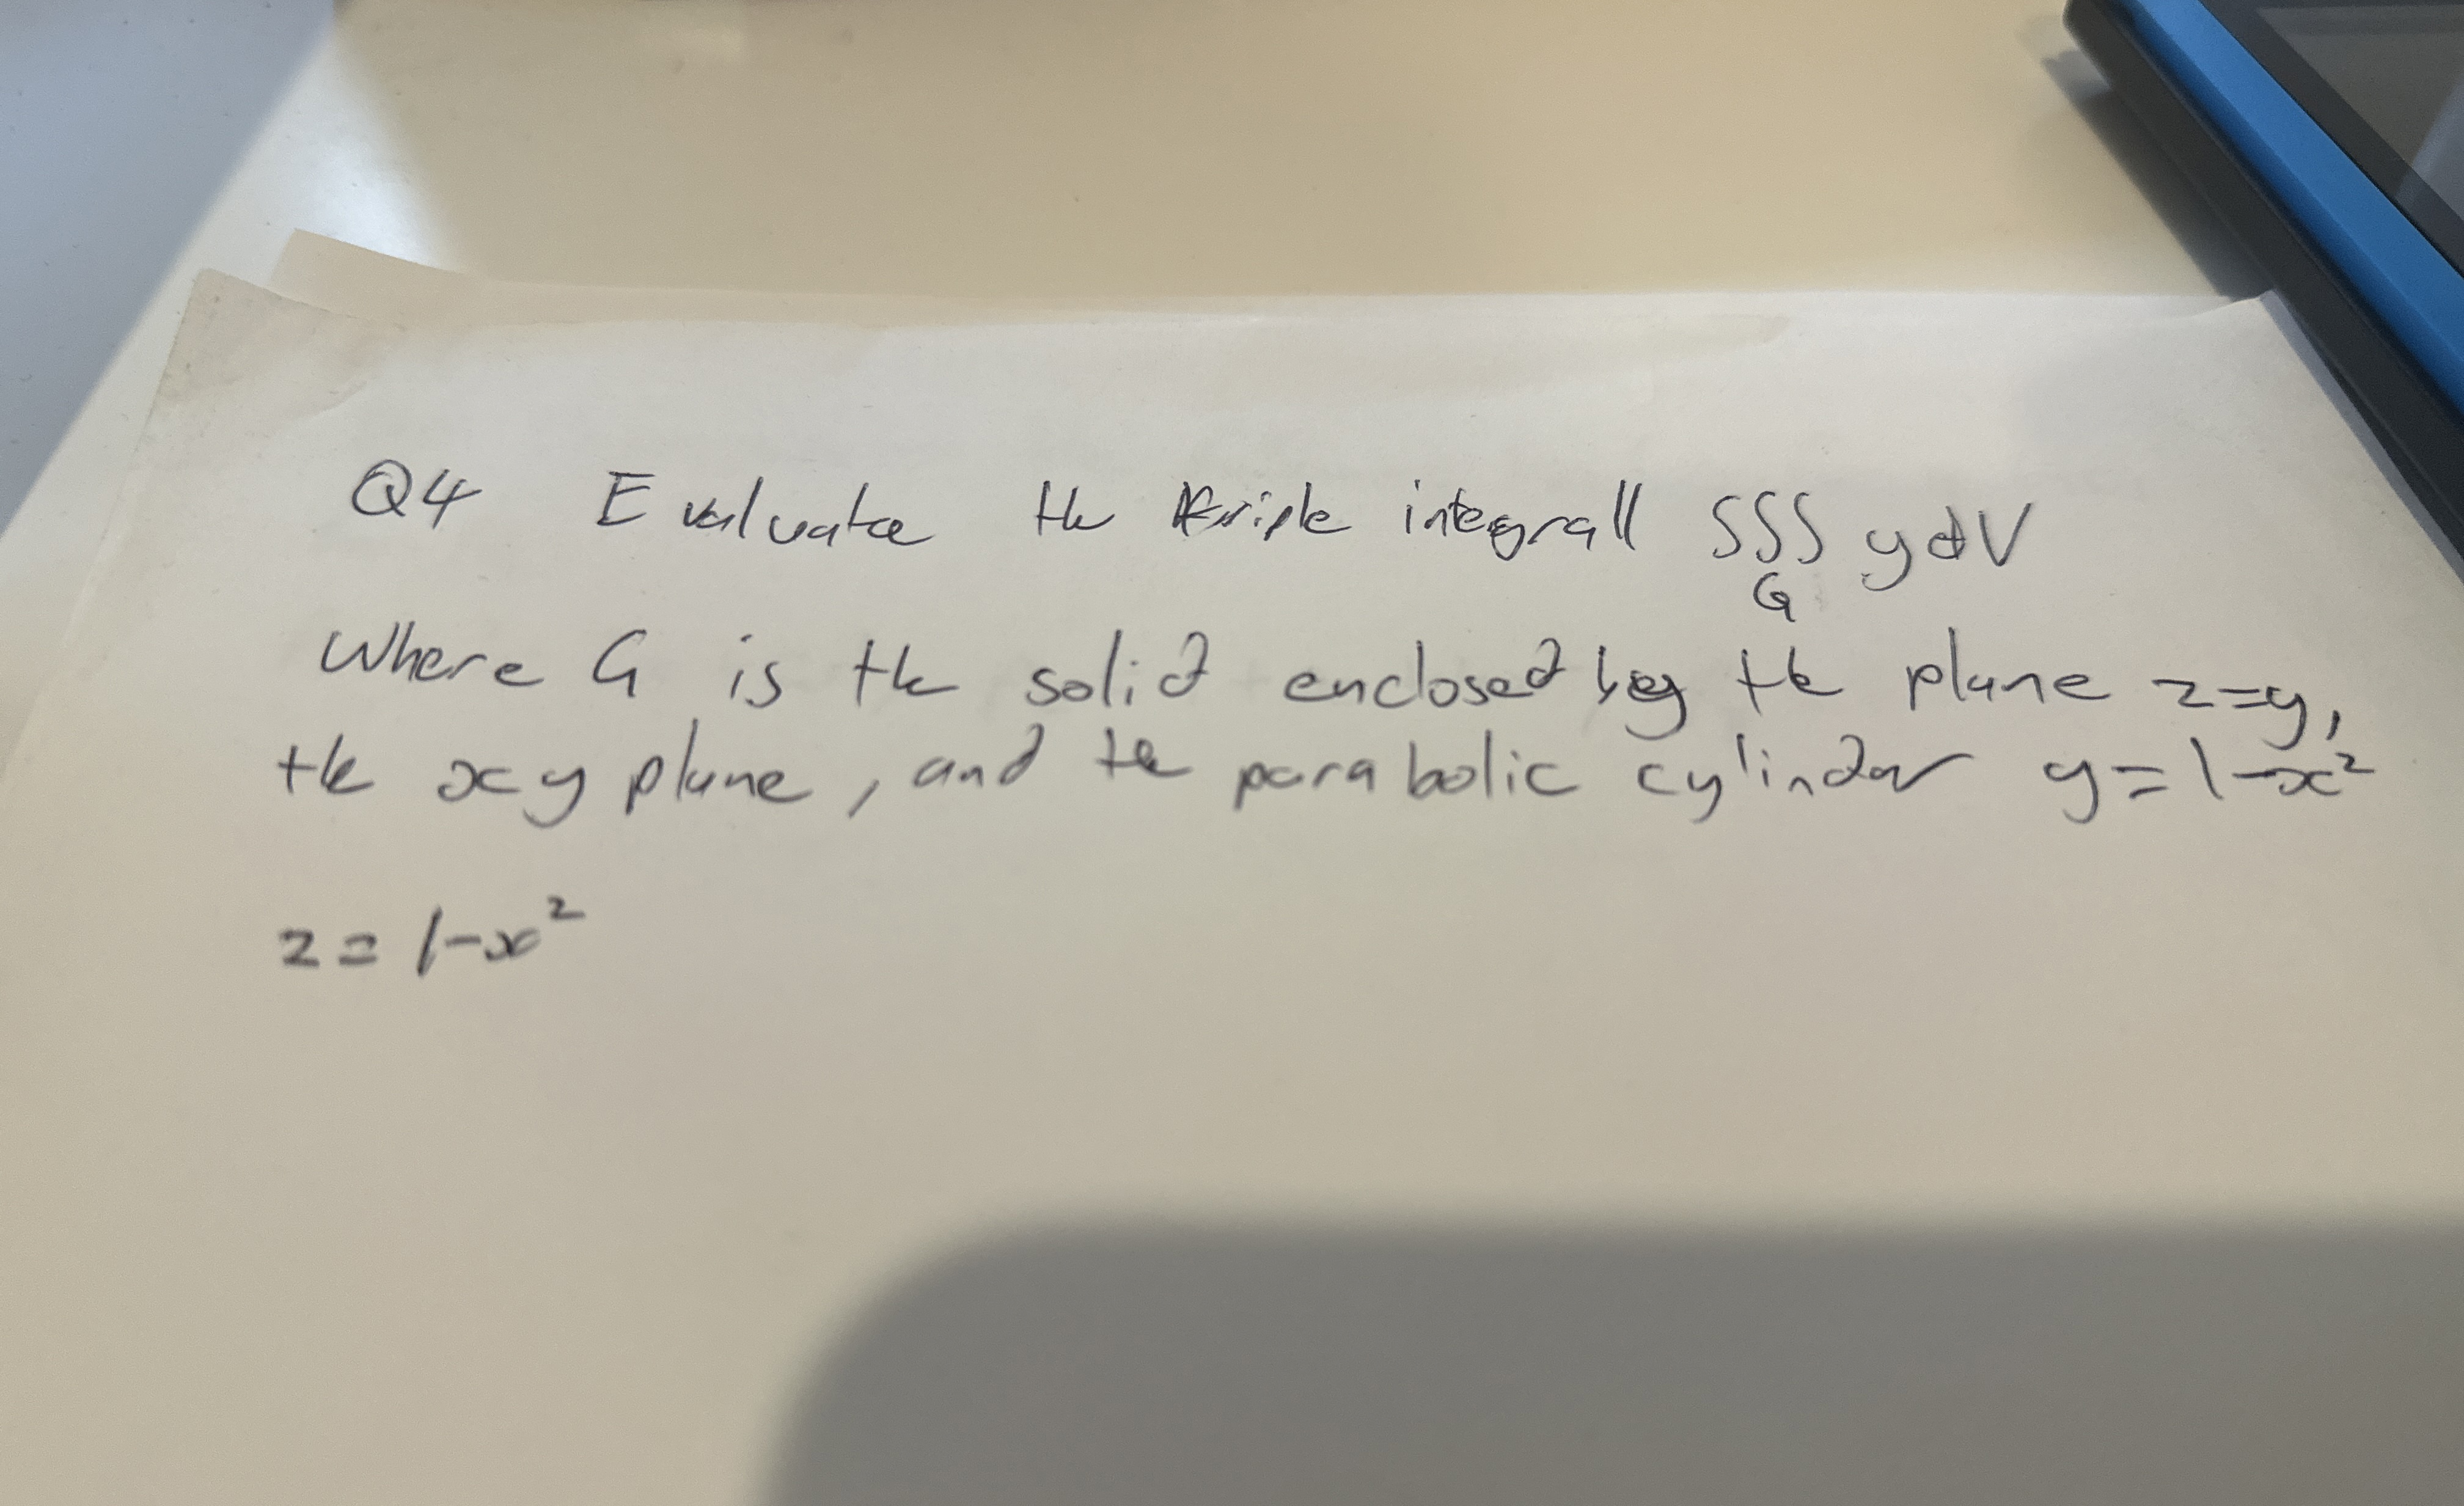 Q4 Evaluate the triple integrall ∫∫∫ y dV
G
Where G is the solid enclosed by the plane z=y,
the xy plane, and the parabolic cylinder y=1-x²
z=1-x²